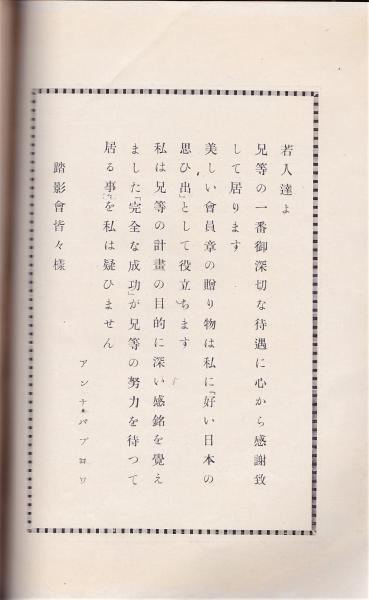 若人達よ
兄等の一番御深切な待遇に心から感謝致
して居ります
美しい會員章の贈り物は私に「好い日本の
思ひ出」として役立ちます
私は兄等の計畫の目的に深い感銘を覺え
ました「完全な成功」が兄等の努力を待つて
居る事を私は疑ひません
アンナ・パブロワ
踏影會皆々樣